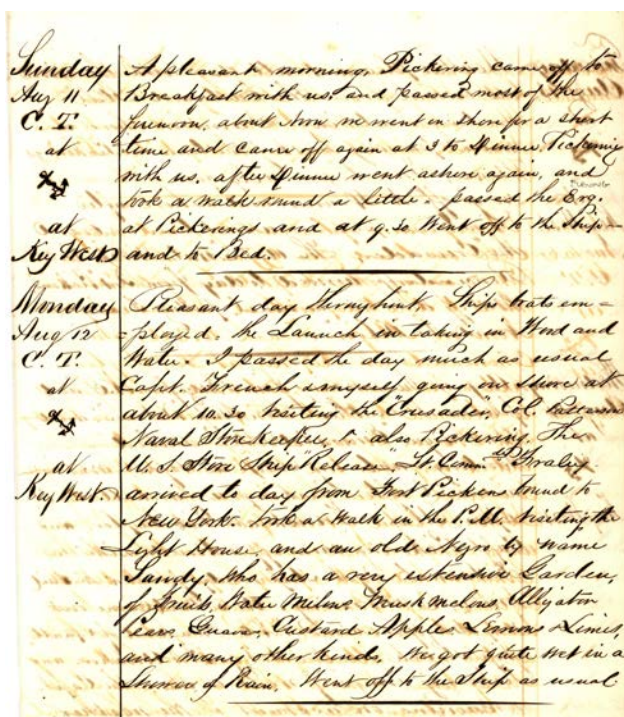 Sunday
Aug 11
C. T.
at
at
Key West
A pleasant morning, Pickering came off to
Breakfast with us, and passed most of the
forenoon. about Noon we went on shore for a short
time and came off again at 3 to Dinner, Pickering
with us. after Dinner went ashore again, and
took a walk round a little. passed the Evg.
at Pickerings and at 9.30 Went off to the Ship—
and to Bed.
Monday
Aug 12
C. T.
at
at
Key West.
Pleasant day throughout, Ships boats em=
=ployed, the Launch in taking in Wood and
Water. I passed the day much as usual
Capt. French & myself going on shore at
about 10.30 Visiting the "Crusader", Col. Patterson
Naval Storekeeper, & also Pickering. The
U. S. Store Ship "Release" Lt. Comm Fraley
arrived to day from Fort Pickens bound to
New York. took a Walk in the P.M. Visiting the
Light House, and an old Negro by name
Sandy, who has a very extensive Garden,
of Fruits, Water Melons, Muskmelons, Alligator
Pears, Guava, Custard Apple, Lemons & Limes,
and many other kinds, We got quite wet in a
Shower of Rain. Went off to the Ship as usual